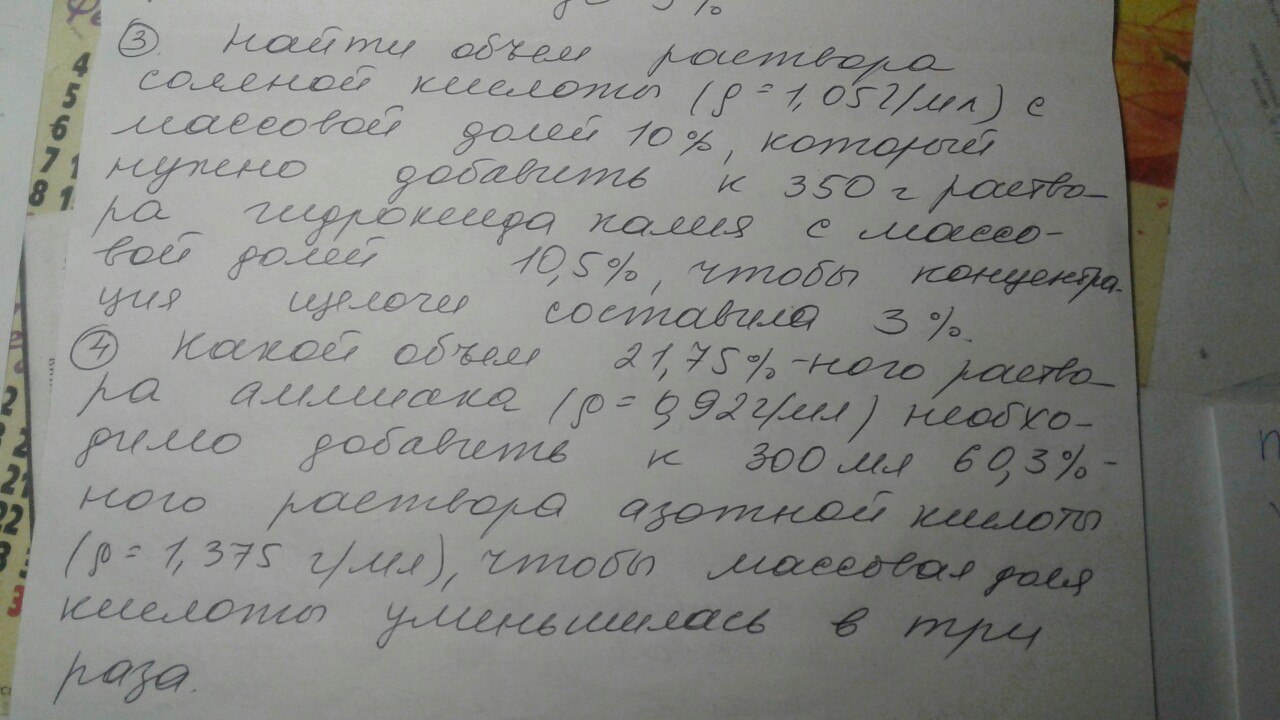 3%
③. Найти объем раствора
соляной кислоты (ρ = 1,05 г/мл) с
массовой долей 10%, который
нужно добавить к 350 г раство-
ра гидроксида калия с массо-
вой долей 10,5%, чтобы концентра-
ция щелочи составила 3%.
④ Какой объем 21,75%-ного раство-
ра аммиака (ρ = 0,92 г/мл) необхо-
димо добавить к 300 мл 60,3%-
ного раствора азотной кислоты
(ρ = 1,375 г/мл), чтобы массовая доля
кислоты уменьшилась в три
раза.
4
5
6
7 1
8 1
2
21
22
3